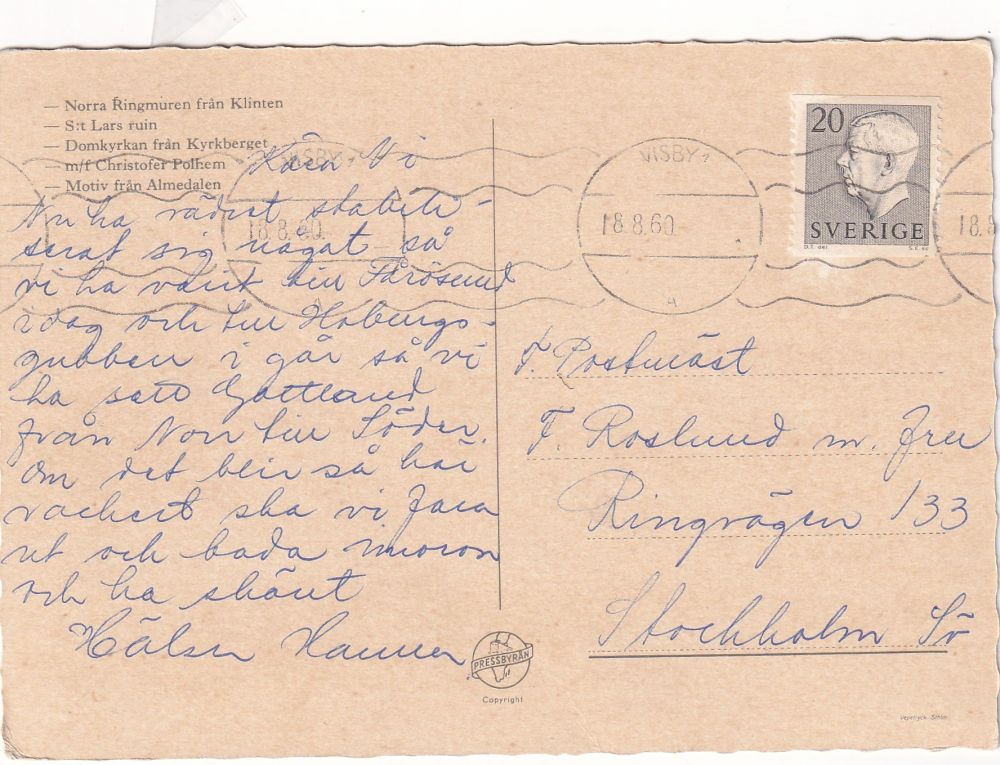 — Norra Ringmuren från Klinten
— S:t Lars ruin
— Domkyrkan från Kyrkberget
— m/f Christofer Polhem
— Motiv från Almedalen
Kära Vi
Nu ha vädret stabili-
serat sig något så
vi ha varit till Fårösund
idag och till Hoburgs-
gubben i går så vi
ha sett Gottland
från Norr till Söder.
Om det blir så här
vackert ska vi fara
ut och bada imoron
och ha skönt
Hälsn
VISBY 1
18.8.60
A
VISBY 1
18.8.60
A
18.8
20
SVERIGE
F. Postmäst
F. Roslund m. fru
Ringvägen 133
Stockholm Sö
PRESSBYRÅN
Copyright